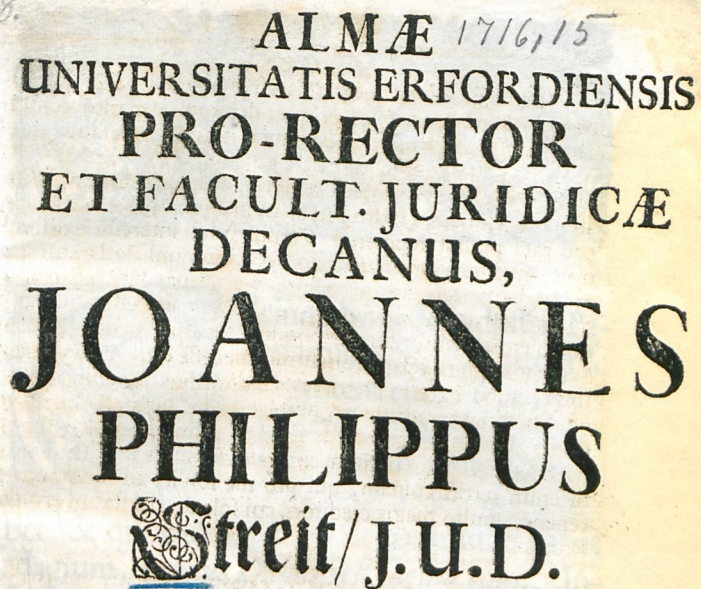 ALMÆ 1716,15
UNIVERSITATIS ERFORDIENSIS
PRO-RECTOR
ET FACULT. JURIDICÆ
DECANUS,
JOANNES
PHILIPPUS
Streit/ J.U.D.